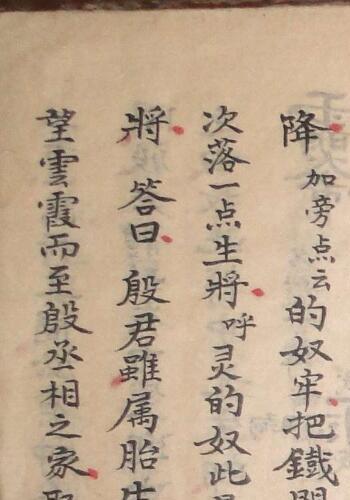 降加旁点云的奴牢把鐵
次落一点生將呼灵的奴此
將答曰殷君雖属胎生
望雲霞而至殷丞相之家